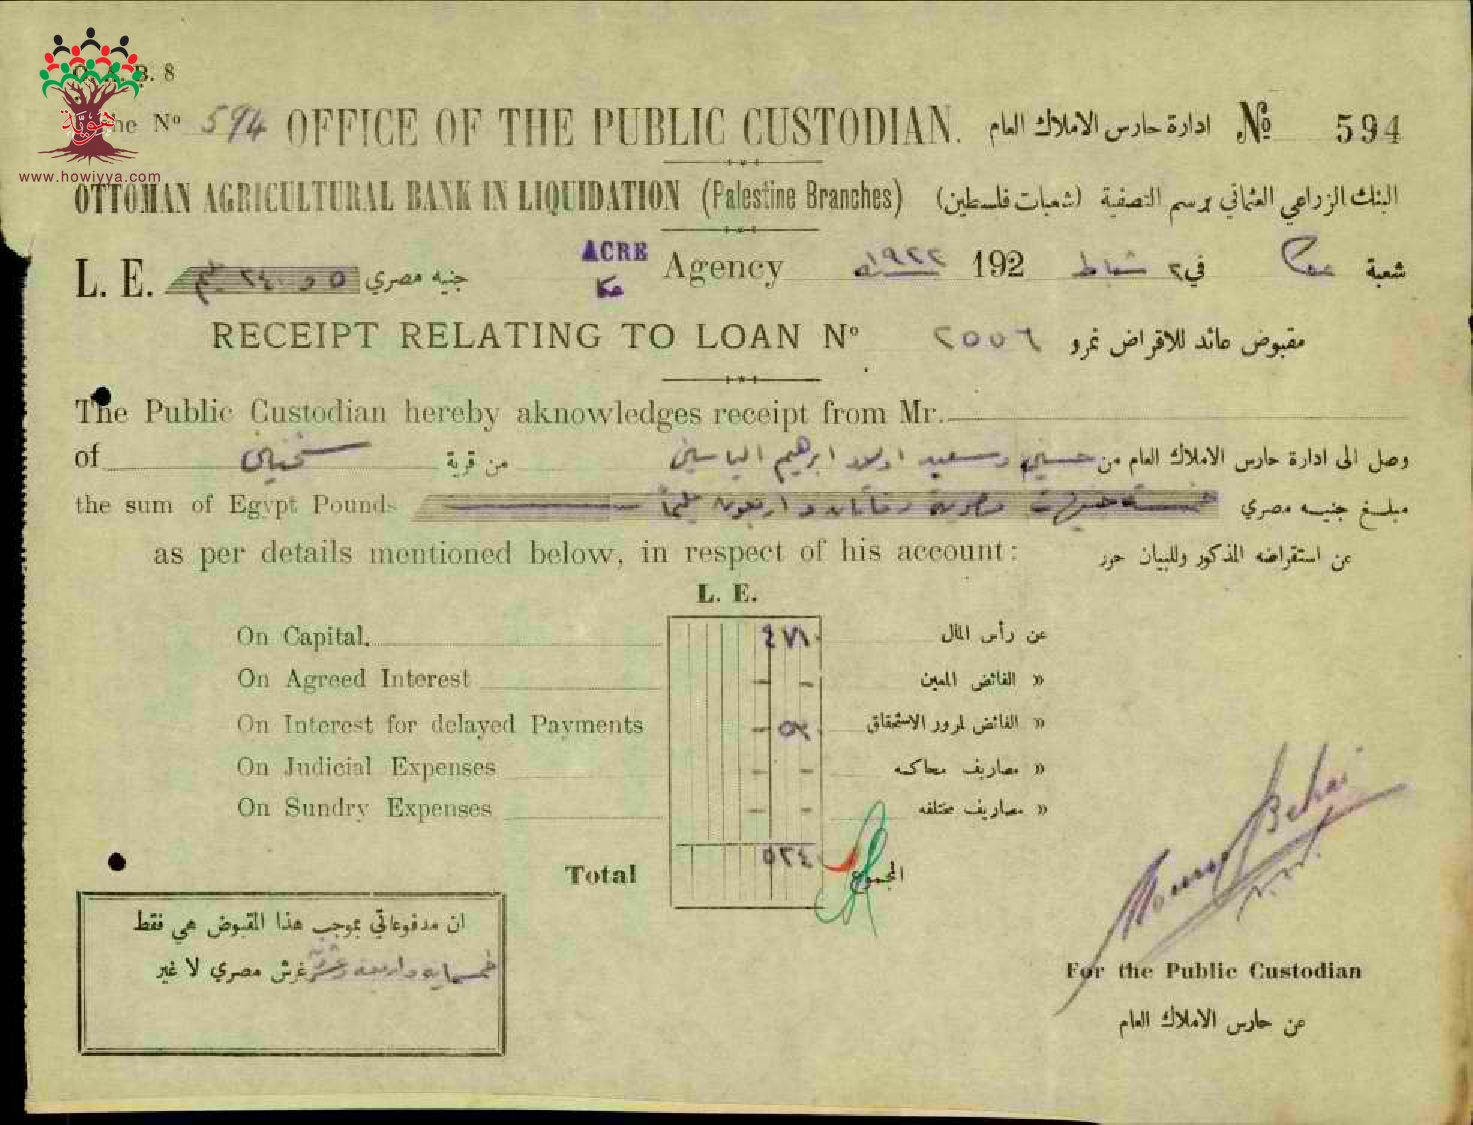 B. 8
هويّة
www.howiyya.com
the Nº 594 OFFICE OF THE PUBLIC CUSTODIAN. ادارة حارس الاملاك العام Nº 594
OTTOMAN AGRICULTURAL BANK IN LIQUIDATION (Palestine Branches) البنك الزراعي العثماني برسم التصفية (شعبات فلسطين)
L. E. ٥ و ٢٤٠ مليم جنيه مصري ACRE عكا Agency سنة ١٩٢٢ 192 في ٢ شباط شعبة عكا
RECEIPT RELATING TO LOAN Nº ٢٥٥٦ مقبوض عائد للاقراض نمرو
The Public Custodian hereby aknowledges receipt from Mr.
of سخنين من قرية حسين وسعيد اولاد ابرهيم الياسين وصل الى ادارة حارس الاملاك العام من
the sum of Egypt Pounds خمسة جنيهات مصرية ومايتان واربعون مليما مبلغ جنيه مصري
as per details mentioned below, in respect of his account: عن استقراضه المذكور وللبيان حرر
L. E.
On Capital. ٤٧١٠ عن رأس المال
On Agreed Interest - - » الفائض المعين
On Interest for delayed Payments - ٥٣٠ » الفائض لمرور الاستحقاق
On Judicial Expenses - - » مصاريف محاكمه
On Sundry Expenses - - » مصاريف مختلفه
Total ٥٢٤٠ المجموع
ان مدفوعاتي بموجب هذا المقبوض هي فقط
خمسمايه واربعه وعشرون غرش مصري لا غير
For the Public Custodian
عن حارس الاملاك العام